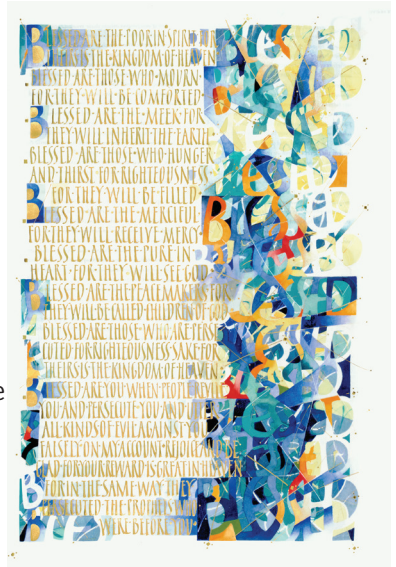 BLESSED·ARE·THE·POOR·IN·SPIRIT·FOR
THEIRS·IS·THE·KINGDOM·OF·HEAVEN
BLESSED·ARE·THOSE·WHO·MOURN·
FOR·THEY·WILL·BE·COMFORTED
BLESSED·ARE·THE·MEEK·FOR
THEY·WILL·INHERIT·THE·EARTH·
BLESSED·ARE·THOSE·WHO·HUNGER
AND·THIRST·FOR·RIGHTEOUSNESS
FOR·THEY·WILL·BE·FILLED
BLESSED·ARE·THE·MERCIFUL
FOR·THEY·WILL·RECEIVE·MERCY
BLESSED·ARE·THE·PURE·IN
HEART·FOR·THEY·WILL·SEE·GOD
BLESSED·ARE·THE·PEACEMAKERS·FOR
THEY·WILL·BE·CALLED·CHILDREN·OF·GOD
BLESSED·ARE·THOSE·WHO·ARE·PERSE
CUTED·FOR·RIGHTEOUSNESS·SAKE·FOR
THEIRS·IS·THE·KINGDOM·OF·HEAVEN·
BLESSED·ARE·YOU·WHEN·PEOPLE·REVILE
YOU·AND·PERSECUTE·YOU·AND·UTTER
ALL·KINDS·OF·EVIL·AGAINST·YOU
FALSELY·ON·MY·ACCOUNT·REJOICE·AND·BE
GLAD·FOR·YOUR·REWARD·IS·GREAT·IN·HEAVEN
FOR·IN·THE·SAME·WAY·THEY
PERSECUTED·THE·PROPHETS·WHO
WERE·BEFORE·YOU
BLESSED
e